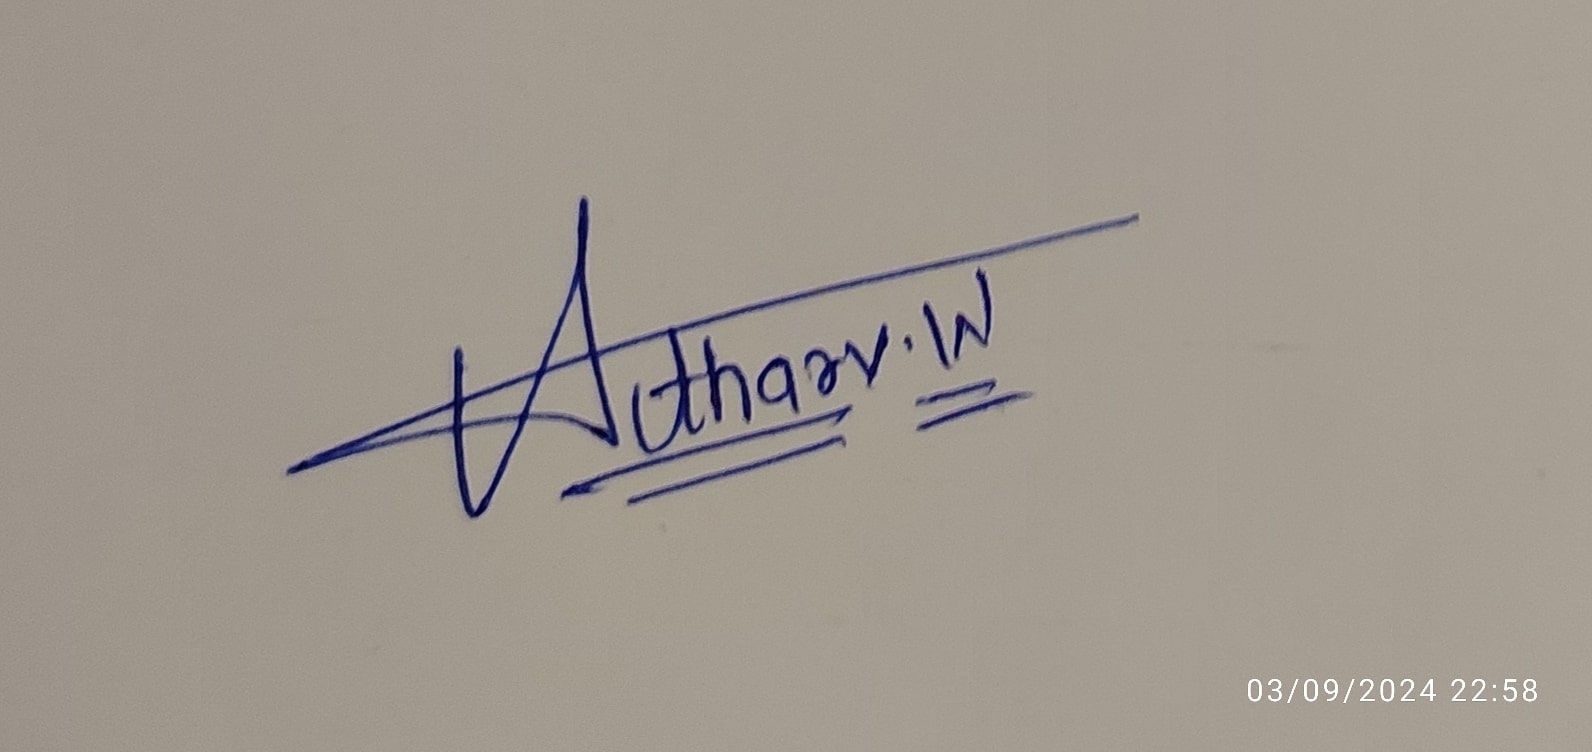 Atharv.W
03/09/2024 22:58